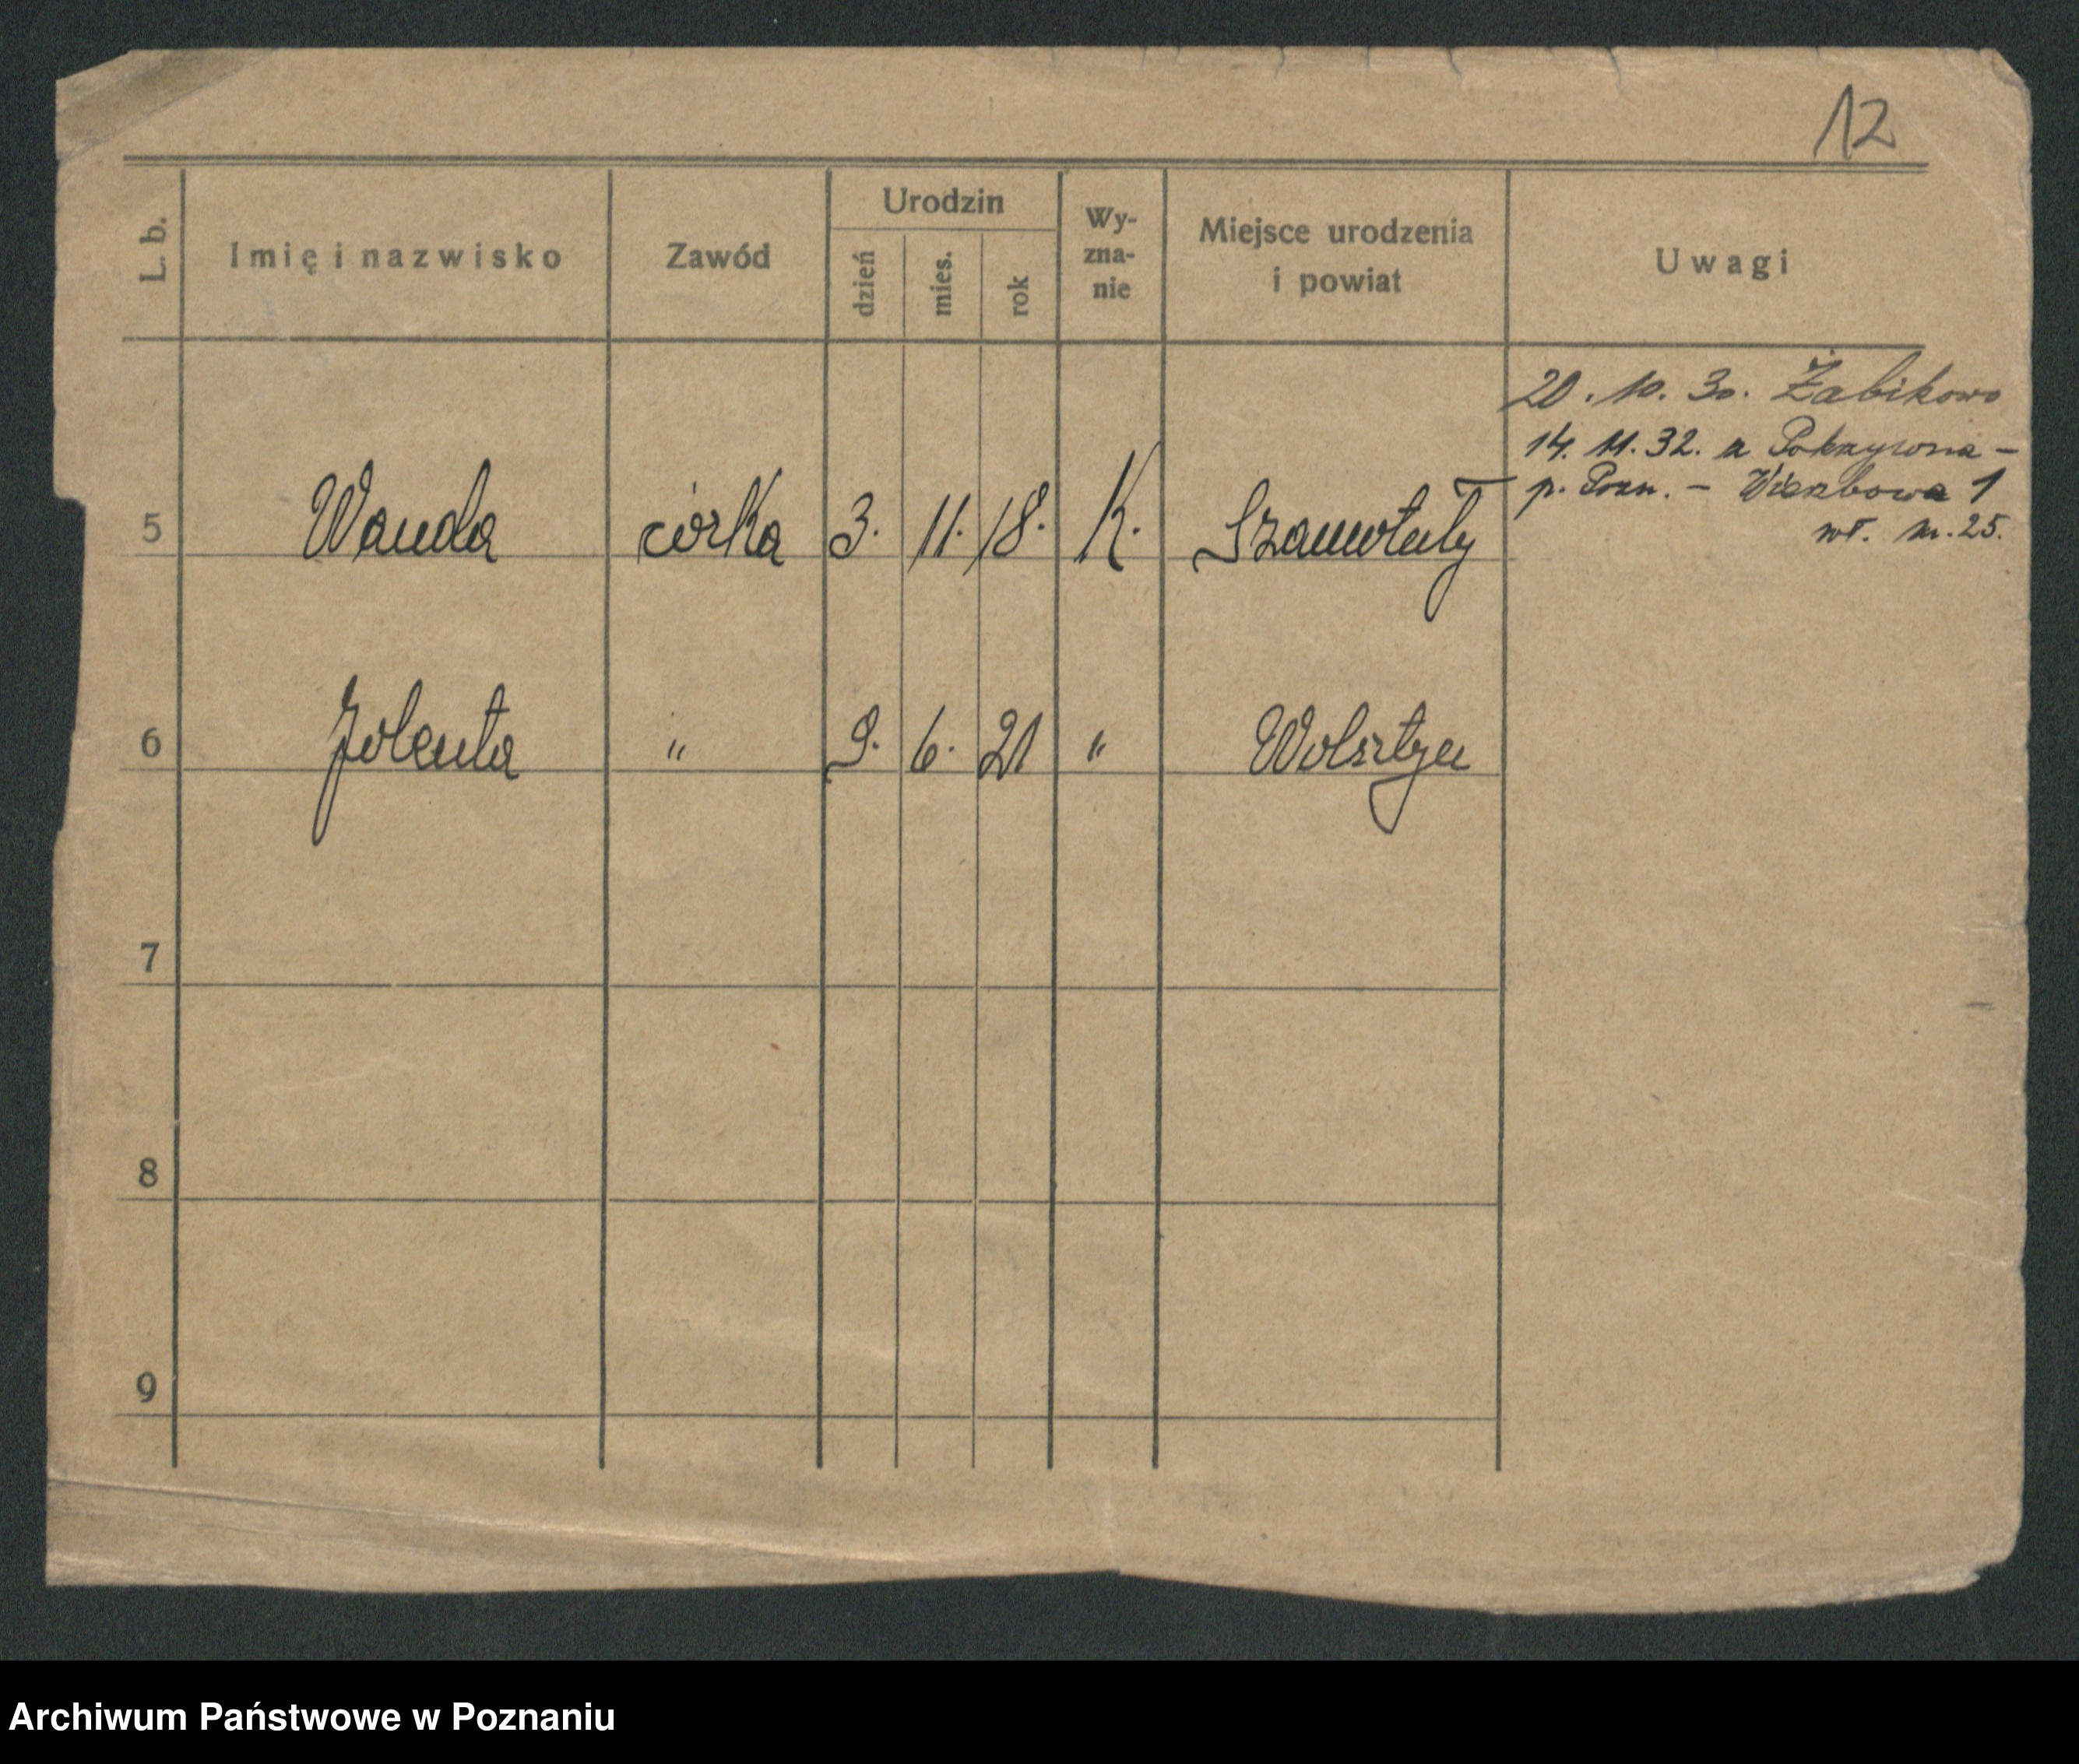 12
L. b.
Imię i nazwisko
Zawód
Urodzin
dzień
mies.
rok
Wy-
zna-
nie
Miejsce urodzenia
i powiat
Uwagi
20. 10. 30. Żabikowo
14. 11. 32. z Pokrzywna –
p. Pozn. – Wierzbowa 1
wł. nr. 25.
5 Wanda córka 3. 11. 18. K. Szamotuły
6 Jolenta " 9. 6. 21 " Wolsztyn
7
8
9
Archiwum Państwowe w Poznaniu